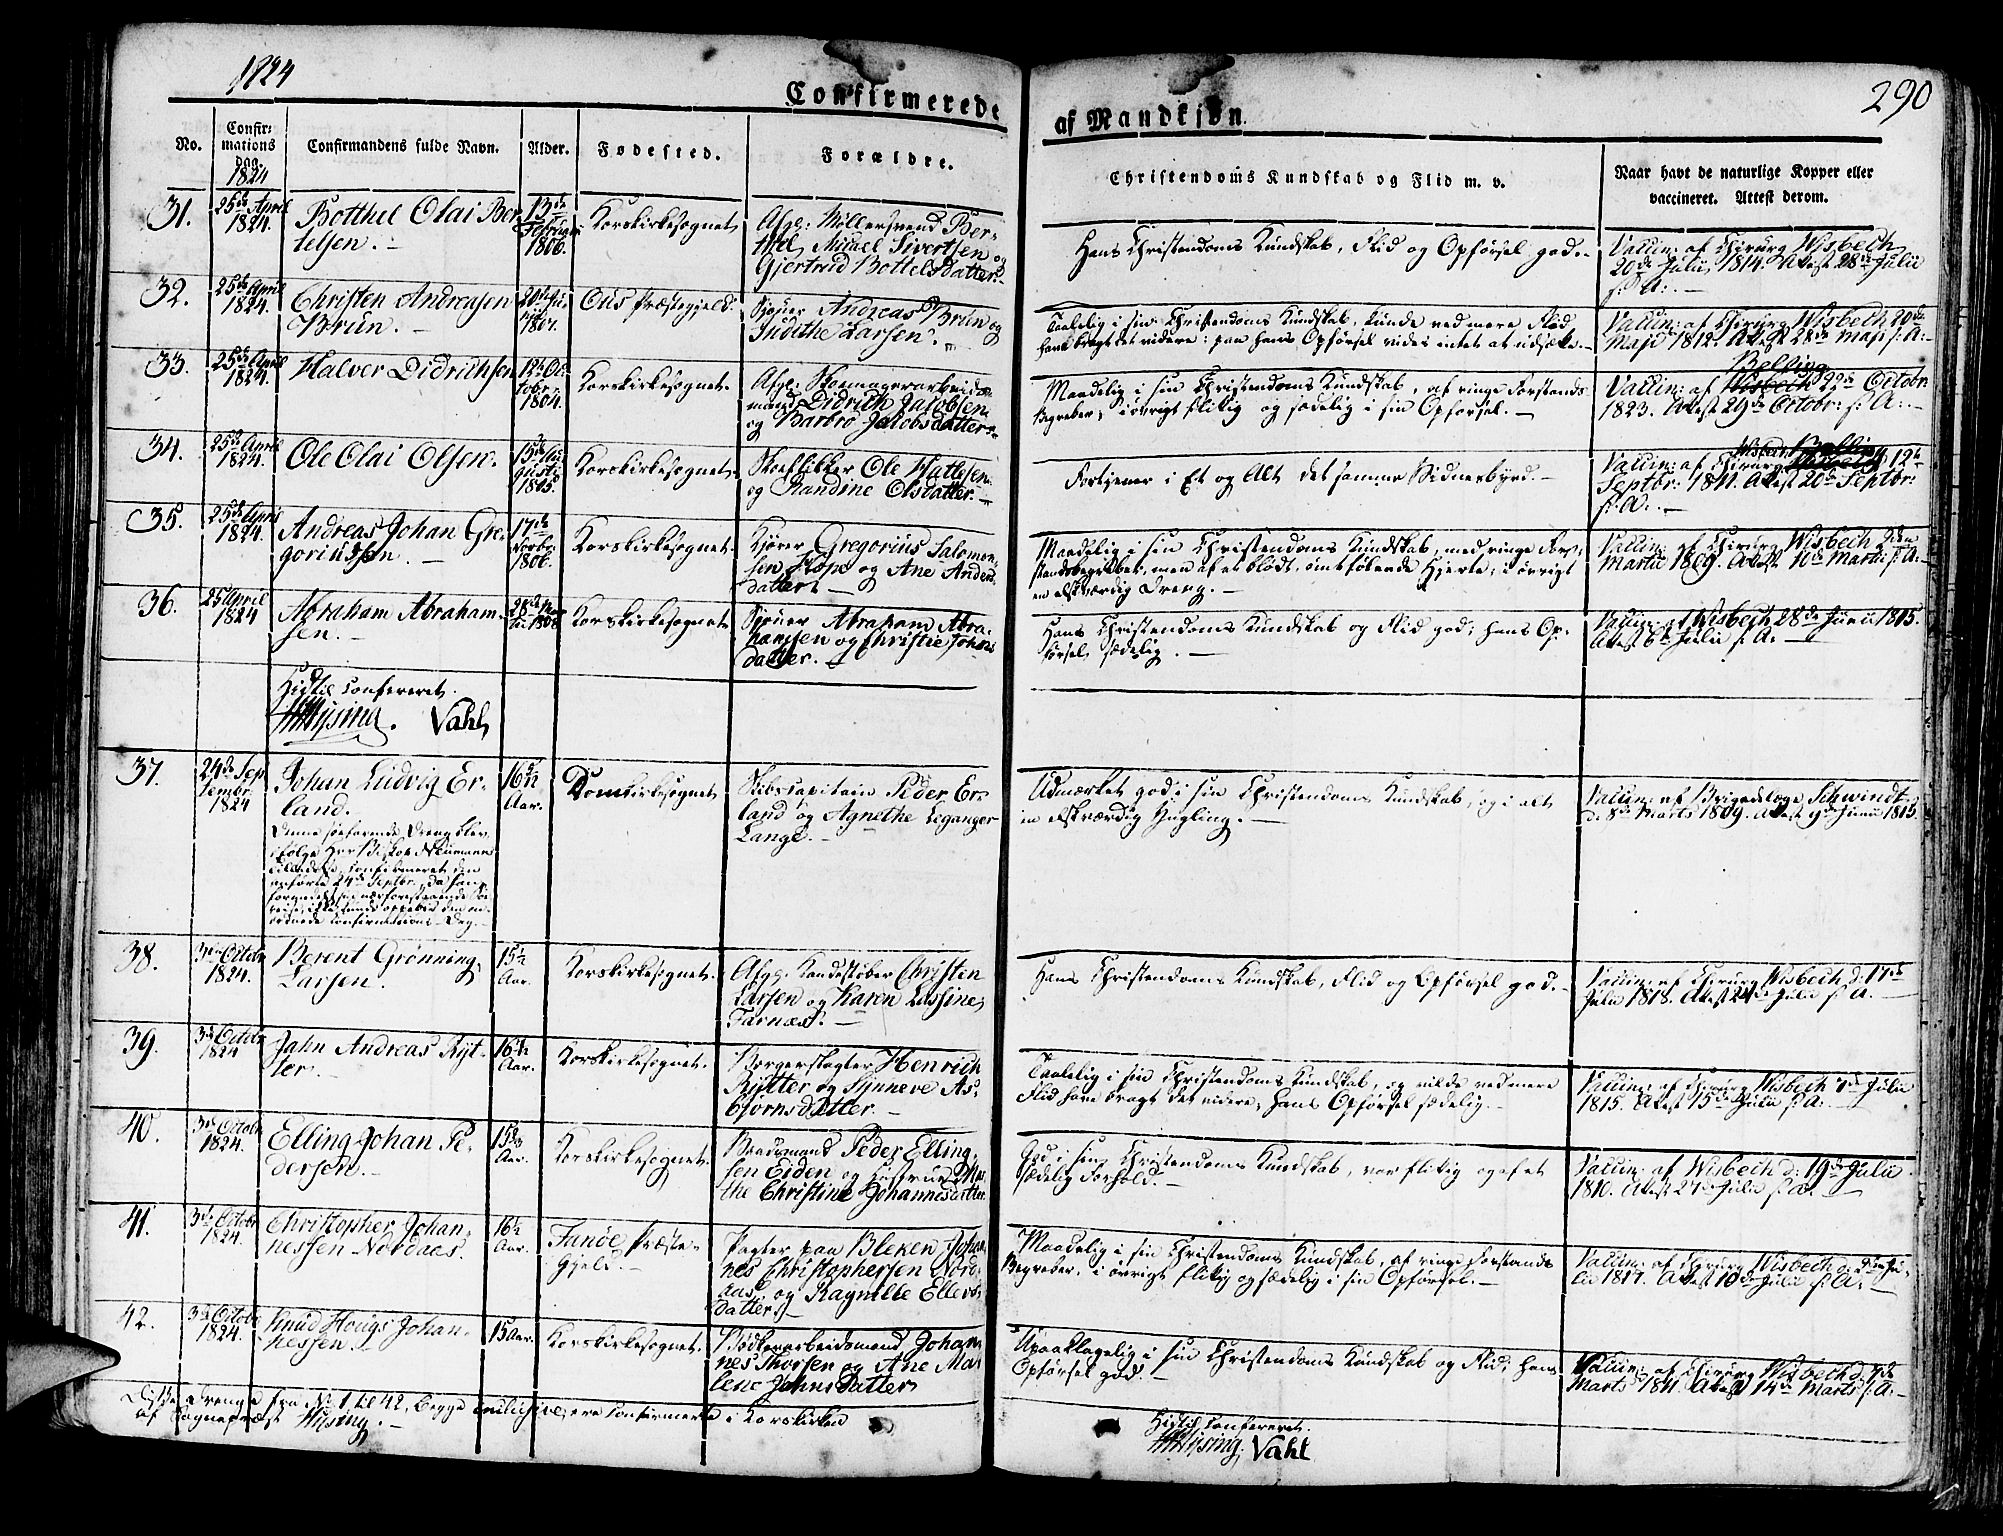 1824
290
Confirmerede
af Mandkjøn.
No.
Confir-
mations
dag.
1824
Confirmandens fulde Navn.
Alder.
Fødested.
Forældre.
Christendoms Kundskab og Flid m. v.
Naar havt de naturlige Kopper eller
vaccineret. Attest derom.
31.
25de April
1824.
Botthel Olai Ber-
telsen. -
13de
Februar
1806.
Korskirkesognet
Afg: Møllersvend Ber-
thel Mikael Sivertsen og
Gjertrud Bottels Datter.
Hans Christendoms Kundskab, Flid og Opførsel god. -
Vaccin: af Chirurg Wisbech
20de Julii 1814. Attest 28de Julii
s: A: -
32.
25de April
1824.
Christen Andreasen
Brun. -
1807.
Ous Præstegjeld.
Andreas Brun og
Judithe Larsen. -
Taalelig i sin Christendoms Kundskab, kunde ved mere Flid
have bragt det videre; paa hans Opførsel vides intet at udsætte. -
Vaccin: af Chirurg Wisbech 20de
Maji 1812. Attest 28de Maji s: A: -
33.
25de April
1824.
Halver Didrichsen
12te Oc-
tobr.
1804.
Korskirkesognet.
Afg:
mand Didrich Jacobsen
og Barbro Jacobsdatter. -
Maadelig i sin Christendoms Kundskab, af ringe Forstands
Begreber; i øvrigt flittig og sædelig i sin Opførsel. -
Balling
Vaccin: af Wisbech 22de Octobr.
1823. Attest 29de Octobr: s: A: -
34.
25de April
1824.
Ole Olai Olsen. -
15de Au-
gusti
1805.
Korskirkesognet.
Skoeflikker Ole Hatlesen
og Randine Olsdatter. -
Fortjener i Et og Alt det samme Vidnesbyrd. -
Wisbech
Vaccin: af Chirurg 12te
Septbr: 1811. Attest 20de Septbr:
s: A: -
35.
25de April
1824.
Andreas Johan Gre-
goriussen. -
17de
Novbr.
1806.
Korskirkesognet.
Kjører Gregorius Salomon-
sen Stope og Ane Anders
datter. -
Maadelig i sin Christendoms Kundskab, med ringe For-
standsbegreber, men af et blødt, ømtfølende Hjerte; i øvrigt
en elskværdig Dreng. -
Vaccin: af Chirurg Wisbech 2den
Martii 1809. Attest 10de Martii s: A: -
36.
25 April
1824
Abraham Abraham-
sen. -
Korskirkesognet
Abraham Abra-
hamsen og Christie Johans
datter. -
Hans Christendoms Kundskab og Flid god; hans Op-
førsel sædelig. -
Vaccin: af Wisbech 28de Junii 1815.
Attest 6te Julii s: A: -
Hidtil confereret.
Hysing. Vahl
37.
24de Sep
tembr.
1824
Johan Ludvig Er-
land.
Denne søefarende Dreng blev
ifølge Herr Biskop Neumanns
Tilladelse, confirmeret den
anførte 24de Septbr, da han
formedelst sin nærforestaaende Søe-
reise, ikke kunde oppebie den an-
ordnede Confirmations-Dag.
16 5/12
Aar.
Domkirkesognet
Skibscapitain Peder Er-
land og Agnethe Leganger
Lange. -
Udmærket god i sin Christendoms Kundskab, og i alt
en elskværdig Yngling. -
Vaccin: af Brigadelæge Schwindt
d. 8de Marts 1809. Attest 9de Junii 1815.
38.
3de Octobr
1824.
Berent Grønning
Larsen.
15 1/2
Aar.
Korskirkesognet.
Afg. Kandestøber Christen
Larsen og Karen Lussine
Farnæs. -
Hans Christendoms Kundskab, Flid og Opførsel god. -
Vaccin: af Chirurg Wisbech d: 17de
Julii 1818. Attest 24de Julii s: A. -
39.
3de Octobr
1824
Jahn Andreas Ryt-
ter. -
Aar.
Korskirkesognet.
Borgervægter Henrich
Rytter og Synneve As-
bjørnsdatter. -
Taalelig i sin Christendoms Kundskab, og vilde ved mere
Flid have bragt det videre; hans Opførsel sædelig. -
Vaccin: af Chirurg Wisbech 7de Julii
1815. Attest 15de Julii s: A: -
40.
3de Octobr
1824.
Elling Johan Pe-
dersen. -
Aar.
Korskirkesognet.
Baadsmand Peder Elling-
sen Eiden og Hustrue Mar-
the Christine Johannisdatter.
God i sin Christendoms Kundskab, var flittig og af et
sædelig Forhold. -
Vaccin: af Wisbech d: 19de Julii
1810. Attest 27de Julii s: A. -
41.
3de Octobr
1824.
Christopher Johan-
nessen Nordaas.
16 1/2
Aar.
Fanøe Præste-
Gjeld. -
paa Bleken Johan-
nes Christophersen Nord-
aas, og Ragnilde Ellers-
datter. -
Maadelig i sin Christendoms Kundskab, af ringe Forstands
Begreber, i øvrigt flittig og sædelig i sin Opførsel. -
Vaccin: af Chirurg Wisbech d. 2den Ju-
lii 1817. Attest 10de Julii s: A: -
42.
3de Octobr
1824.
Knud Houg Johan-
nessen.
15 Aar.
Korskirkesognet.
Bødkerarbeidsmand Johan
nes Thorsen og Ane Ma-
lene Johns Datter
Upaaklagelig i sin Christendoms Kundskab og Flid; hans
Opførsel god. -
Vaccin: af Chirurg Wisbech d. 7de
Marts 1811. Attest 14de Marts s: A: -
Disse Drenge fra No 1 til 42, begge inclusive, ere confirmerte i Korskirken
af Sognepræst Hysing.
Hidtil confereret.
Hysing. Vahl